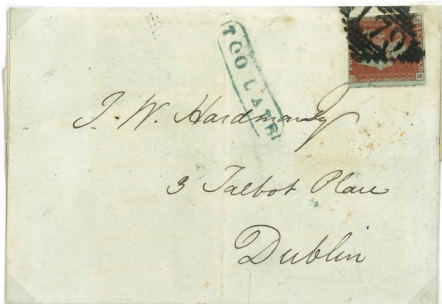 TOO LATE
179
J. W. Hardman Esq
3 Talbot Place
Dublin